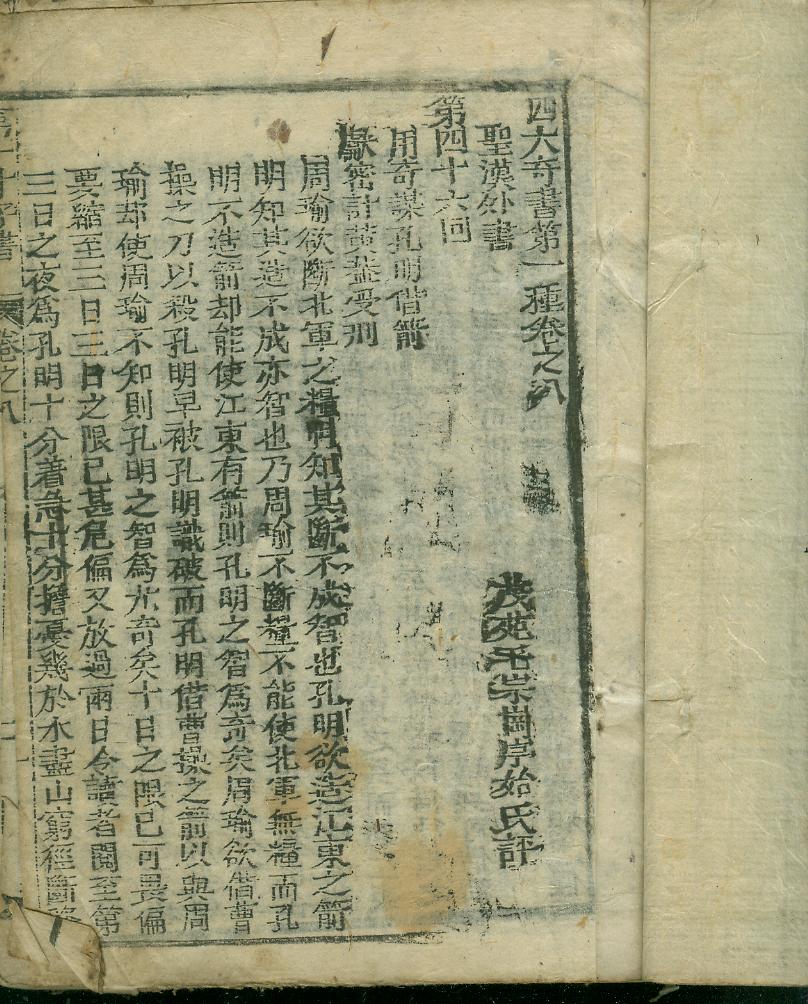 四大奇書第一種卷之八
聖漢外書
茂苑毛宗崗序始氏評
第四十六回
用奇謀孔明借箭
獻密計黃蓋受刑
周瑜欲斷北軍之糧明知其斷不成智也孔明欲造江東之箭
明知其造不成亦智也乃周瑜不斷糧不能使北軍無糧而孔
明不造箭却能使江東有箭則孔明之智爲奇矣周瑜欲借曹
操之刀以殺孔明早被孔明識破而孔明借曹操之箭以與周
瑜却使周瑜不知則孔明之智爲尤奇矣十日之限已可畏偏
要縮至三日三日之限已甚危偏又放過兩日今讀者閱至第
三日之夜爲孔明十分着急十分擔憂幾於水盡山窮徑斷
卷之八